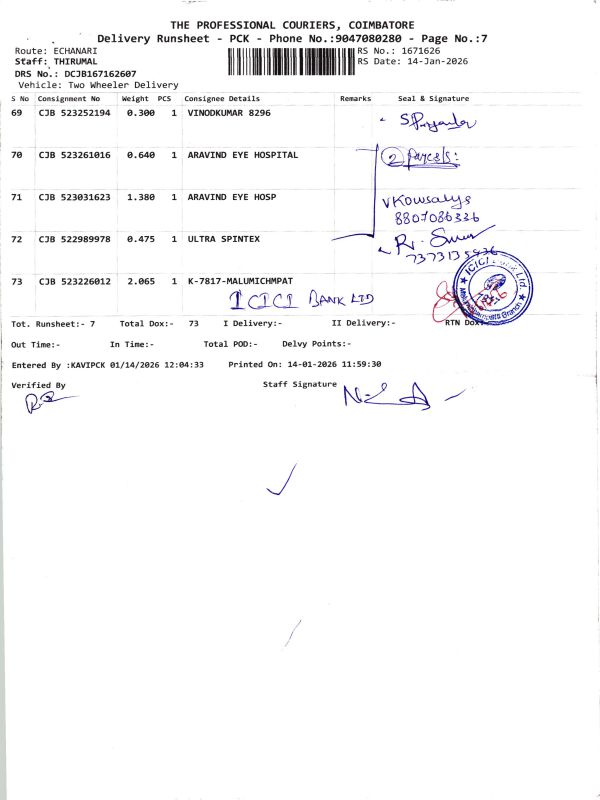 THE PROFESSIONAL COURIERS, COIMBATORE
Delivery Runsheet - PCK - Phone No.:9047080280 - Page No.:7
Route: ECHANARI
RS No.: 1671626
Staff: THIRUMAL
RS Date: 14-Jan-2026
DRS No.: DCJB167162607
Vehicle: Two Wheeler Delivery
S No Consignment No Weight PCS Consignee Details Remarks Seal & Signature
69 CJB 523252194 0.300 1 VINODKUMAR 8296
70 CJB 523261016 0.640 1 ARAVIND EYE HOSPITAL
2 Parcels:
71 CJB 523031623 1.380 1 ARAVIND EYE HOSP
VKowsalya
8807086336
72 CJB 522989978 0.475 1 ULTRA SPINTEX
73 CJB 523226012 2.065 1 K-7817-MALUMICHMPAT
ICICI BANK LTD
ICICI Bank Ltd.
Branch
Tot. Runsheet:- 7 Total Dox:- 73 I Delivery:- II Delivery:- RTN Dox:-
Out Time:- In Time:- Total POD:- Delvy Points:-
Entered By :KAVIPCK 01/14/2026 12:04:33 Printed On: 14-01-2026 11:59:30
Verified By Staff Signature